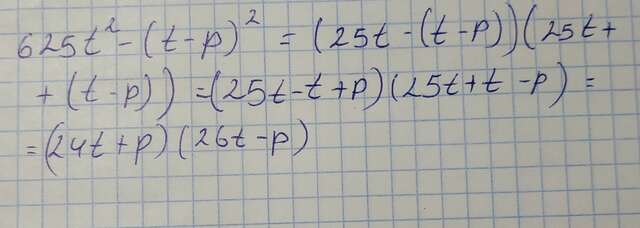 625t² - (t - p)² = (25t - (t - p))(25t +
+ (t - p)) = (25t - t + p)(25t + t - p) =
= (24t + p)(26t - p)